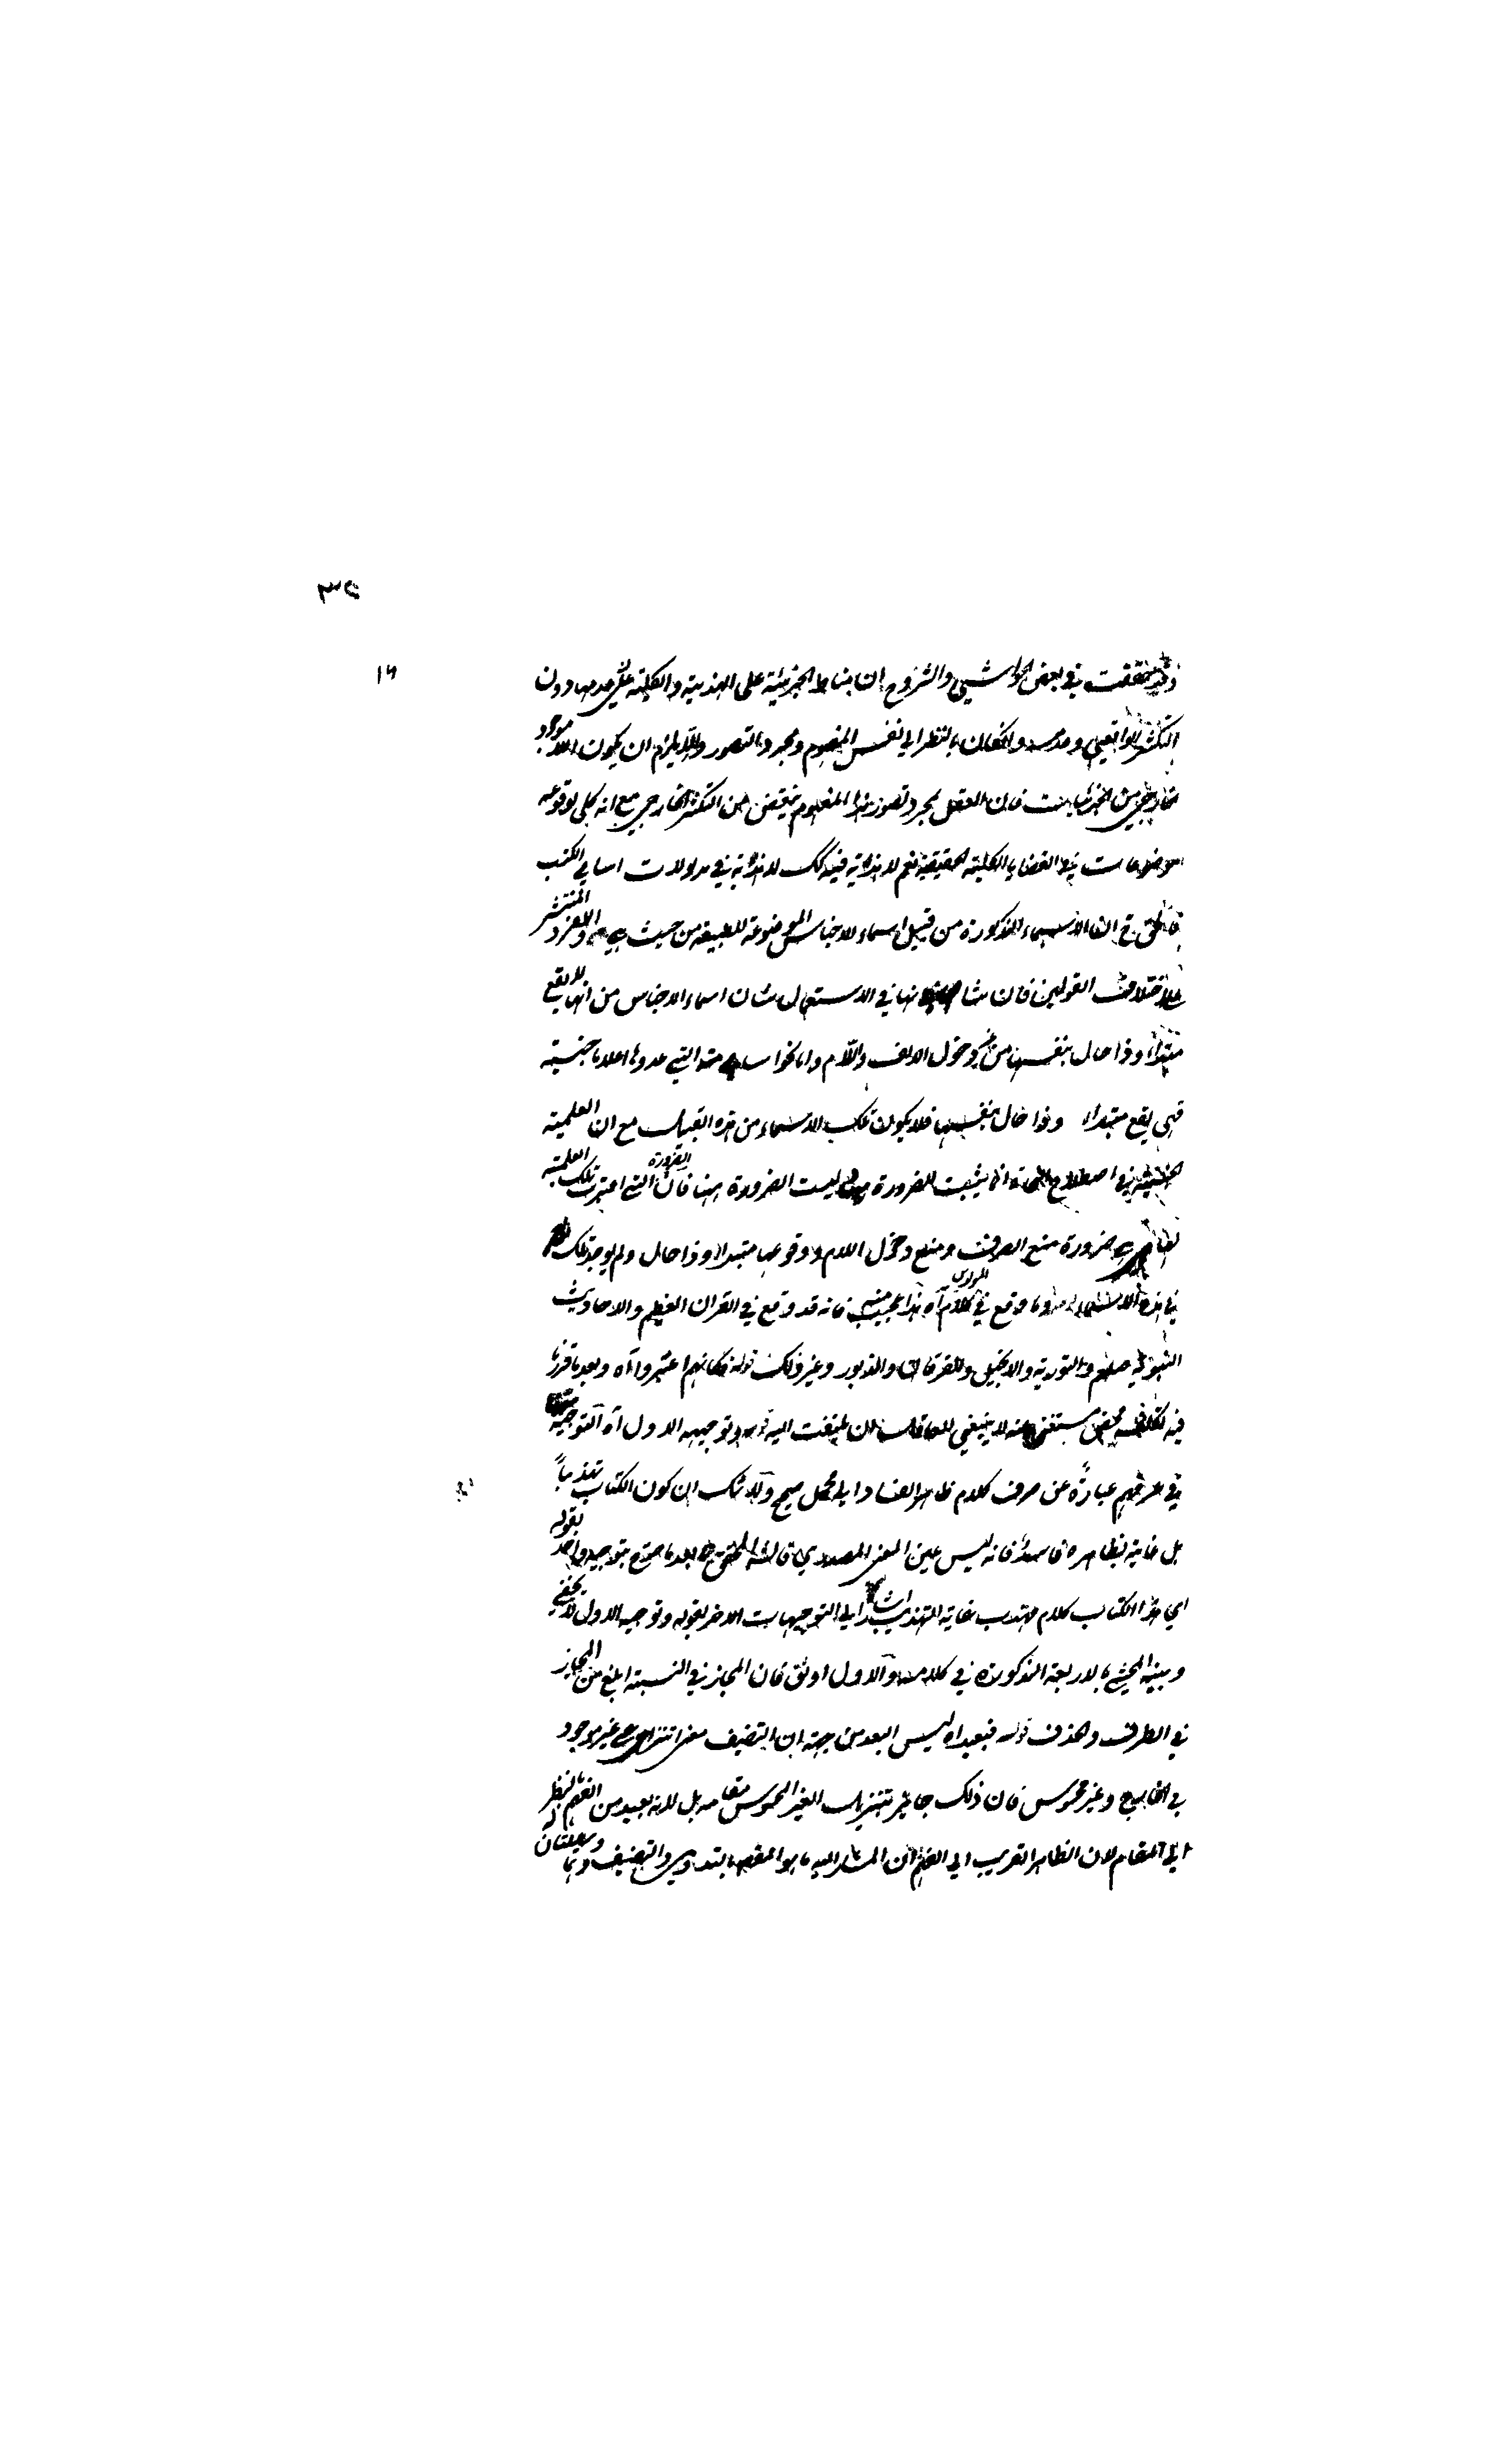 ٣٥
١٦
وقد حققت في بعض الحواشي والشروح ان مناط الجزئية على الهذية والكلية على عدمها دون
التكثر الواقعي وعدمه والكمان بالنظر الى نفس المفهوم ومجرد التصور والا يلزم ان يكون اللا موجود
خارجي من الجزئيات فان العقل بمجرد تصور هذا المفهوم ينقبض من التكثر الخارجي مع انه كلي لوقوعه
موضوعات في القضايا الكلية الحقيقية نعم لا هذية فيه كك لا هذية في مدلولات اسامي الكتب
فالحق ح ان الاسماء المذكورة من قبيل اسماء الاجناس الموضوعة للطبيعة من حيث هي او للفرد المنتشر
على اختلاف القولين فان شانها في الاستعمال شان اسماء الاجناس من انها لا يقع
مبتداء وذا حال بنفسها من غير دخول الالف واللام واما نحو اسامة التي عدوها اعلاما جنسية
فهي يقع مبتداء وذا حال بنفسها فلا يكون تلك الاسماء من هذه القبيل مع ان العلمية
الجنسية في اصطلاح النحاة انما يثبت للضرورة وليست الضرورة ههنا فان الضرورة التي اعتبرت تلك العلمية
لها هي ضرورة منع الصرف ومنع دخول اللام ووقوعها مبتداء وذا حال ولم يوجد تلك
في هذه الاسماء وما وقع في كلام المولدين آه هذا عجيب منه فانه قد وقع في القران العظيم والاحاديث
النبوية صلعم والتورية والانجيل والفرقان والزبور وغير ذلك قوله فكانهم اعتبروا آه وبعد ما قررنا
فيه تكلف محض مستغنى عنه لا ينبغي للعاقل ان يلتفت اليه قوله وتوجيهه الاول آه التوجيه
في عرفهم عبارة عن صرف كلام ظاهر الفساد الى محمل صحيح ولا شك ان كون الكتاب تهذيبا
بل غاية بظاهره فاسد فانه ليس عين المعنى المصدري قال المحقق بعد ما صرح بتوجيه واحد بقوله
اي هذا الكتاب كلام مهذب غاية التهذيب اشار الى التوجيهات الاخر بقوله وتوجيه الاول لا يخفى
وبينه المحشي بالاربعة المذكورة في كلامه والاول اوثق فان المجاز في النسبة ابلغ من المجاز
في الطرف والحذف قوله فبعيد آه ليس البعد من جهة ان التصنيف معنى انتزاعي غير موجود
في الخارج وغير محسوس فان ذلك جائز بتنزيل الغير المحسوس مقامه بل لانه بعيد من الفهم بالنظر
الى المقام لان الظاهر القريب الى الفهم ان المشار اليه ما هو المقصود بالتدوين والتصنيف وهما وسيلتان له